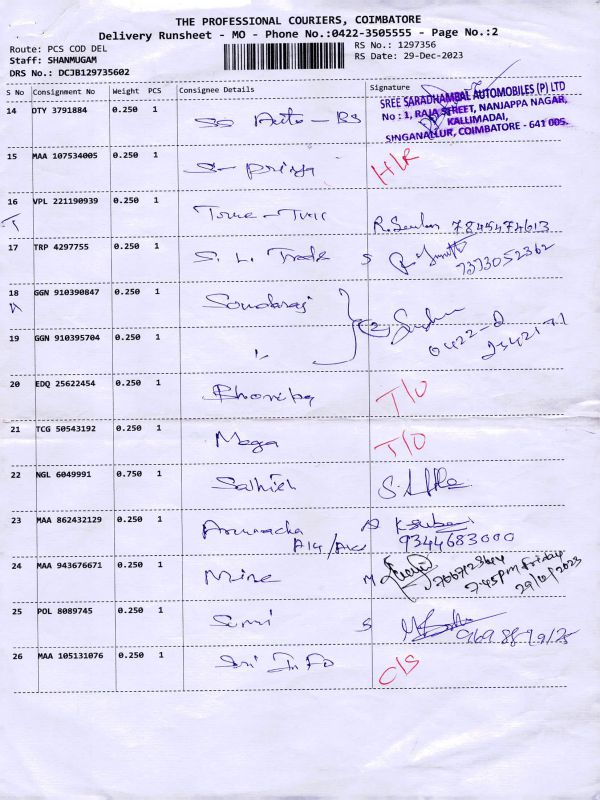 THE PROFESSIONAL COURIERS, COIMBATORE
Delivery Runsheet - MO - Phone No.:0422-3505555 - Page No.:2
Route: PCS COD DEL
RS No.: 1297356
Staff: SHANMUGAM
RS Date: 29-Dec-2023
DRS No.: DCJB129735602
S No Consignment No Weight PCS Consignee Details Signature
SREE SARADHAMBAL AUTOMOBILES (P) LTD
No : 1, RAJA STREET, NANJAPPA NAGAR,
KALLIMADAI,
SINGANALLUR, COIMBATORE - 641 005.
14 DTY 3791884 0.250 1
15 MAA 107534005 0.250 1 H/R
16 VPL 221190939 0.250 1 7845474613
17 TRP 4297755 0.250 1 S. L. Trade S 7373052362
18 GGN 910390847 0.250 1 Soundaraj (2)
0422-2
19 GGN 910395704 0.250 1 "
20 EDQ 25622454 0.250 1 T/O
21 TCG 50543192 0.250 1 Mega T/O
22 NGL 6049991 0.750 1
23 MAA 862432129 0.250 1
9344683000
24 MAA 943676671 0.250 1
7:45pm Friday
29/12/2023
25 POL 8089745 0.250 1 S
26 MAA 105131076 0.250 1 Sri Info C/S